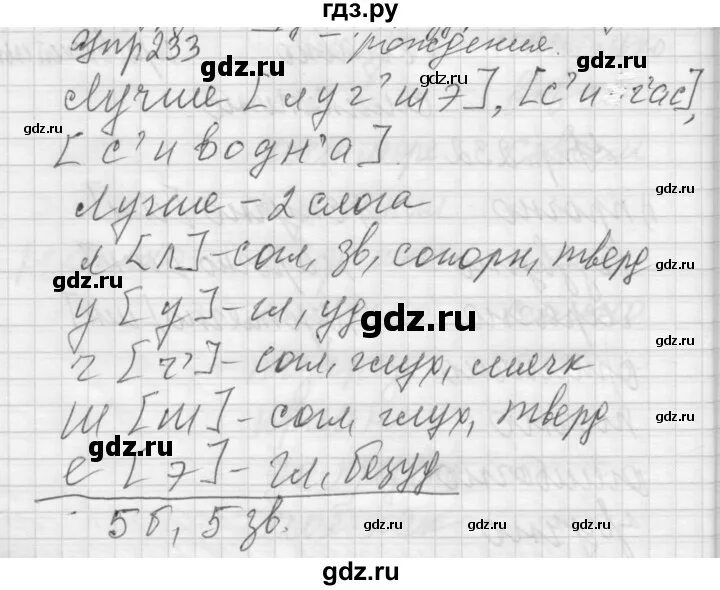 гдз.ру
Упр233 рождения.
Лучше [луч'шэ], [с'и ч'ас],
[с'иводн'а].
Лучше - 2 слога
л [л] - согл, зв, сонорн, тверд
у [у] - гл, уд
ч [ч'] - согл, глух, мягк
ш [ш] - согл, глух, тверд
е [э] - гл, безуд
5 б, 5 зв.
gdz.ru
gdz.ru
gdz.ru
gdz.ru
gdz.ru
gdz.ru
gdz.ru
gdz.ru
gdz.ru
gdz.ru
gdz.ru
gdz.ru
gdz.ru
gdz.ru
gdz.ru
gdz.ru